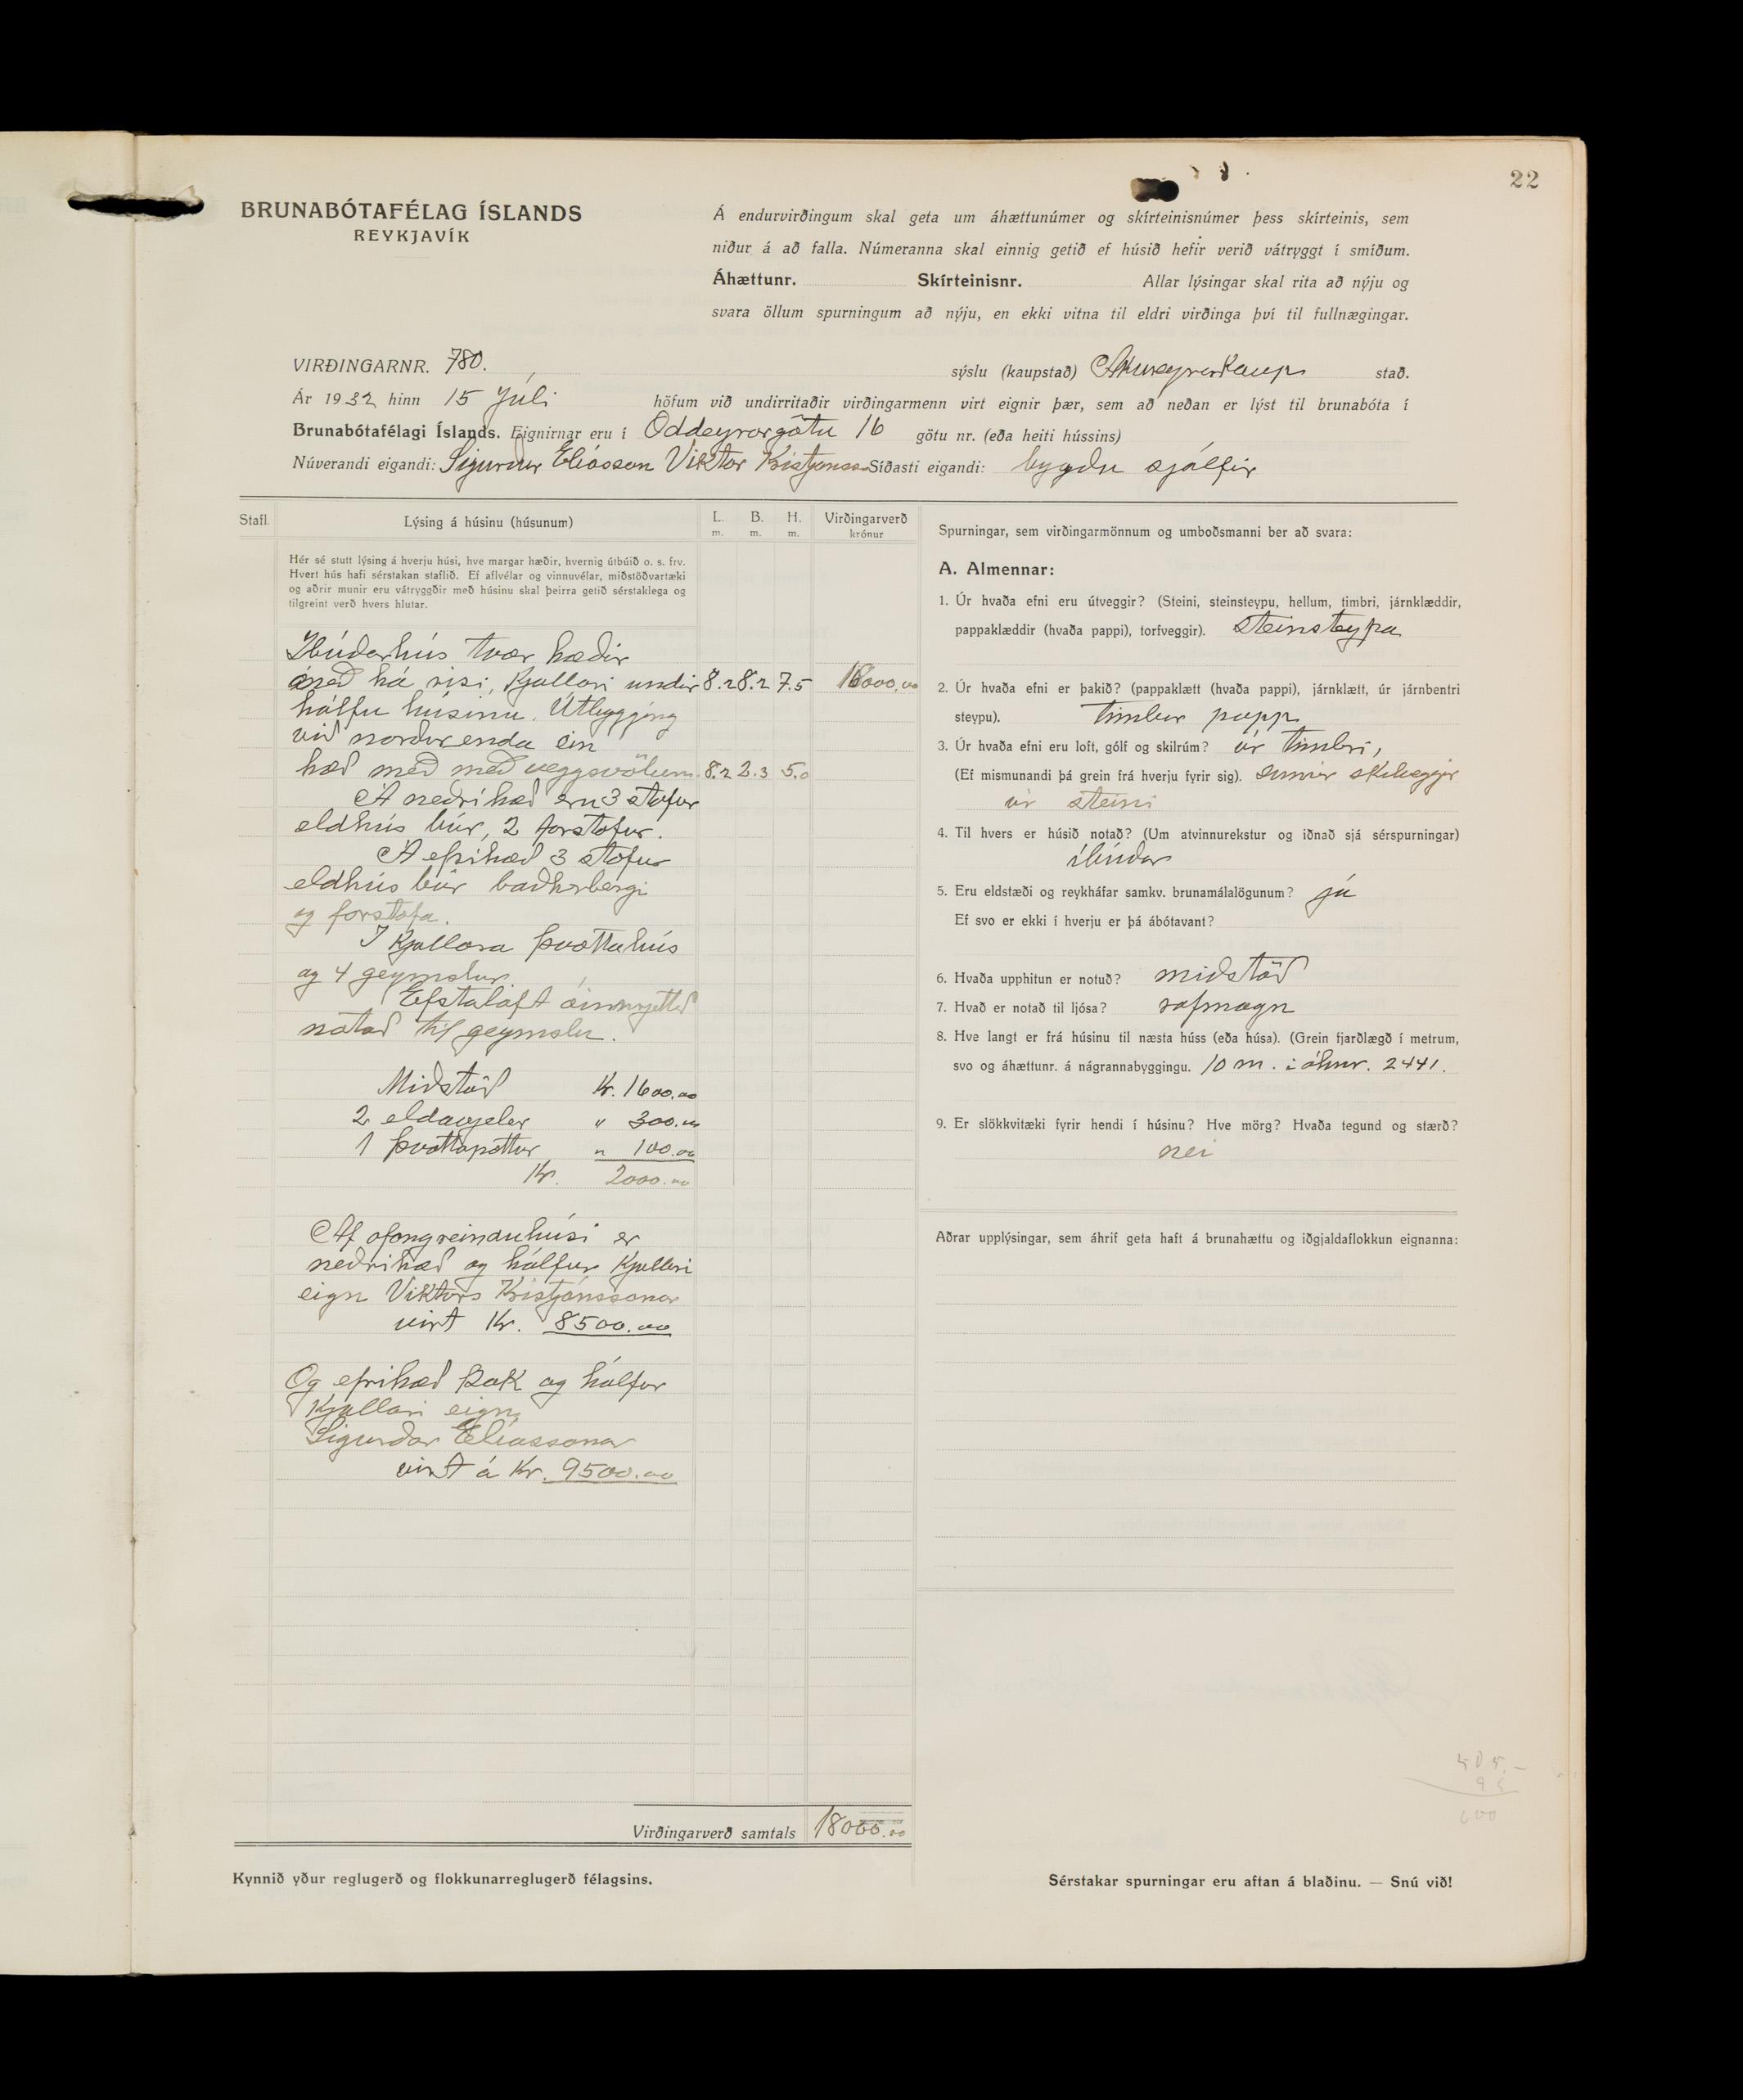 22
BRUNABÓTAFÉLAG ÍSLANDS
REYKJAVÍK
Á endurvirðingum skal geta um áhættunúmer og skírteinisnúmer þess skírteinis, sem
niður á að falla. Númeranna skal einnig getið ef húsið hefir verið vátryggt í smíðum.
Áhættunr. Skírteinisnr. Allar lýsingar skal rita að nýju og
svara öllum spurningum að nýju, en ekki vitna til eldri virðinga því til fullnægingar.
VIRÐINGARNR. 780. sýslu (kaupstað) Akureyrarkaup stað.
Ár 1932 hinn 15 Júlí höfum við undirritaðir virðingarmenn virt eignir þær, sem að neðan er lýst til brunabóta í
Brunabótafélagi Íslands. Eignirnar eru í Oddeyrargötu 16 götu nr. (eða heiti hússins)
Núverandi eigandi: Sigurður Elíasson Viktor Kistjánss Síðasti eigandi: bygðu sjálfir
Stafl. Lýsing á húsinu (húsunum) L. m. B. m. H. m. Virðingarverð krónur
Hér sé stutt lýsing á hverju húsi, hve margar hæðir, hvernig útbúið o. s. frv.
Hvert hús hafi sérstakan staflið. Ef aflvélar og vinnuvélar, miðstöðvartæki
og aðrir munir eru vátryggðir með húsinu skal þeirra getið sérstaklega og
tilgreint verð hvers hlutar.
Íbúðarhús tvær hæðir
með há risi, Kjallari undir 8.2 8.2 7.5 16000,00
hálfu húsinu. Útbygging
við norðurenda ein
hæð með með veggsvölum. 8.2 2.3 5.0
Á neðri hæð eru 3 stofur
eldhús búr, 2 forstofur.
Á efrihæð 3 stofur
eldhús búr baðherbergi
og forstofa.
I Kjallara þvottahús
og 4 geymslur
Efstaloft óinnrjettað
notað til geymslu.
Miðstöð Kr. 1600.00
2 eldavjelar " 300.00
1 þvottapottur " 100.00
Kr. 2000.00
Af ofangreinduhúsi er
neðrihæð og hálfur Kjallari
eign Viktors Kristjánssonar
virt Kr. 8500.00
Og efrihæð þak og hálfur
Kjallari eign
Sigurðar Elíassonar
virt á Kr. 9500.00
Virðingarverð samtals 18000.00
Kynnið yður reglugerð og flokkunarreglugerð félagsins.
Spurningar, sem virðingarmönnum og umboðsmanni ber að svara:
A. Almennar:
1. Úr hvaða efni eru útveggir? (Steini, steinsteypu, hellum, timbri, járnklæddir,
pappaklæddir (hvaða pappi), torfveggir). Steinsteypa
2. Úr hvaða efni er þakið? (pappaklætt (hvaða pappi), járnklætt, úr járnbentri
steypu). Timbur papp
3. Úr hvaða efni eru loft, gólf og skilrúm? úr timbri,
(Ef mismunandi þá grein frá hverju fyrir sig). sumir skilveggir
úr steini
4. Til hvers er húsið notað? (Um atvinnurekstur og iðnað sjá sérspurningar)
íbúðar
5. Eru eldstæði og reykháfar samkv. brunamálalögunum? já
Ef svo er ekki í hverju er þá ábótavant?
6. Hvaða upphitun er notuð? miðstöð
7. Hvað er notað til ljósa? rafmagn
8. Hve langt er frá húsinu til næsta húss (eða húsa). (Grein fjarðlægð í metrum,
svo og áhættunr. á nágrannabyggingu. 10 m. í áhnr. 2441.
9. Er slökkvitæki fyrir hendi í húsinu? Hve mörg? Hvaða tegund og stærð?
nei
Aðrar upplýsingar, sem áhrif geta haft á brunahættu og iðgjaldaflokkun eignanna:
Sérstakar spurningar eru aftan á blaðinu. — Snú við!